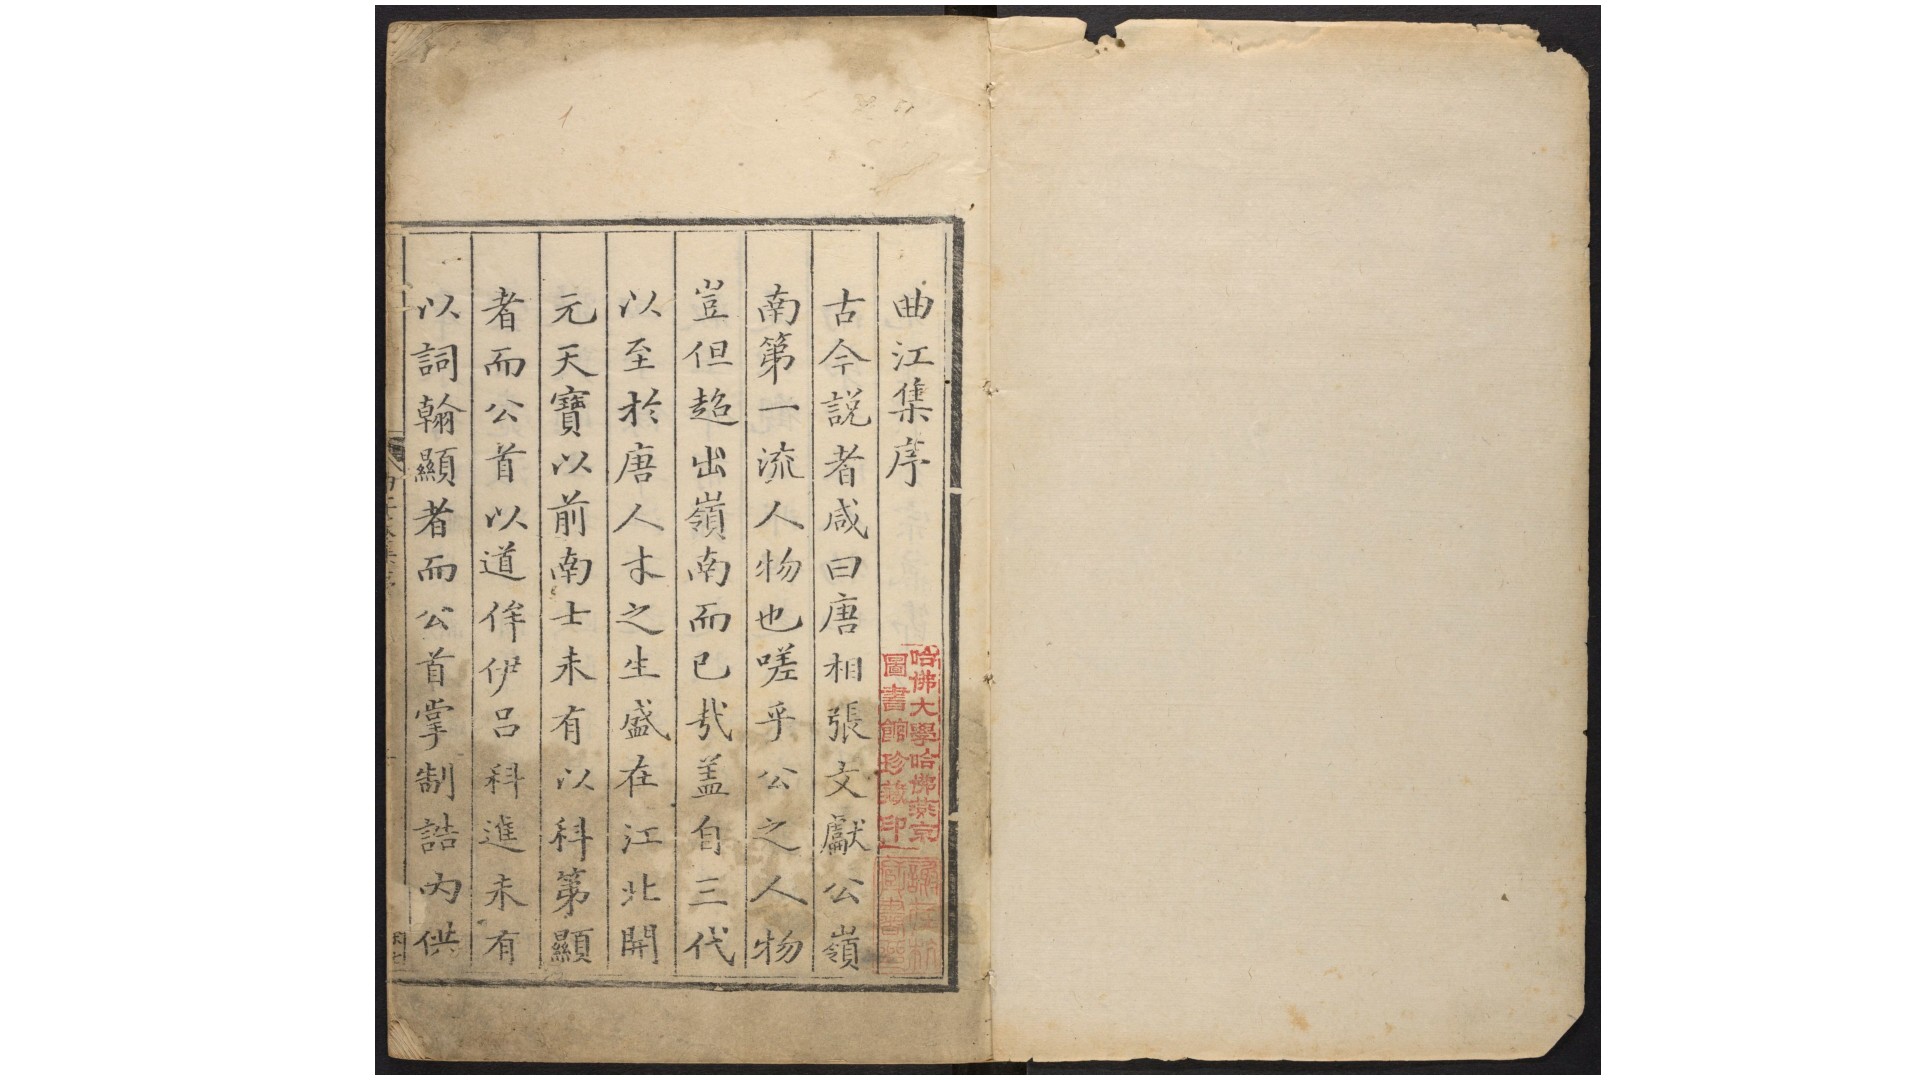 曲江集序
古今説者咸曰唐相張文獻公嶺
南第一流人物也嗟乎公之人物
豈但超出嶺南而已㢤盖自三代
以至於唐人才之生盛在江北開
元天寶以前南士未有以科第顯
者而公首以道侔伊呂科進未有
以詞翰顯者而公首掌制誥內供
哈佛大學哈佛燕京
圖書館珍藏印